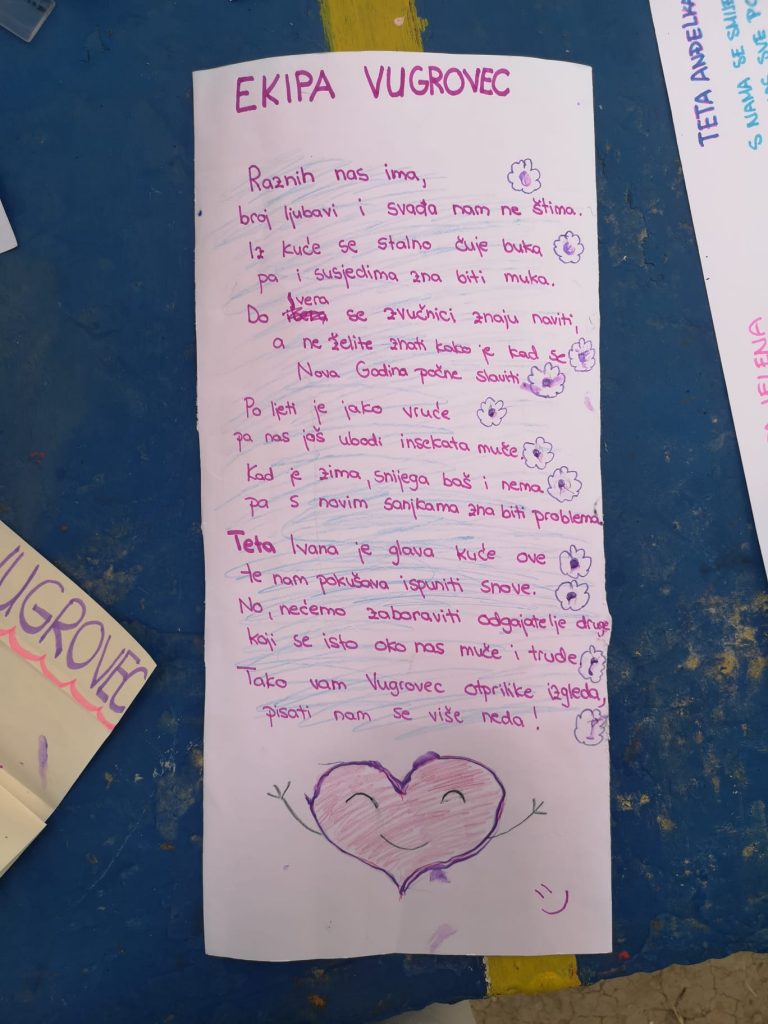 EKIPA VUGROVEC
Raznih nas ima,
broj ljubavi i svađa nam ne štima.
Iz kuće se stalno čuje buka
pa i susjedima zna biti muka.
Do Jvera se zvučnici znaju naviti,
a ne želite znati kako je kad se
Nova Godina počne slaviti.
Po ljeti je jako vruće
pa nas još ubodi insekata muče.
Kad je zima, snijega baš i nema
pa s novim sanjkama zna biti problema.
Teta Ivana je glava kuće ove
te nam pokušava ispuniti snove.
No, nećemo zaboraviti odgajatelje druge
koji se isto oko nas muče i trude.
Tako vam Vugrovec otprilike izgleda,
pisati nam se više neda!
VUGROVEC
TETA ANĐELKA
S NAMA SE SMIJE
SVE
JELENA